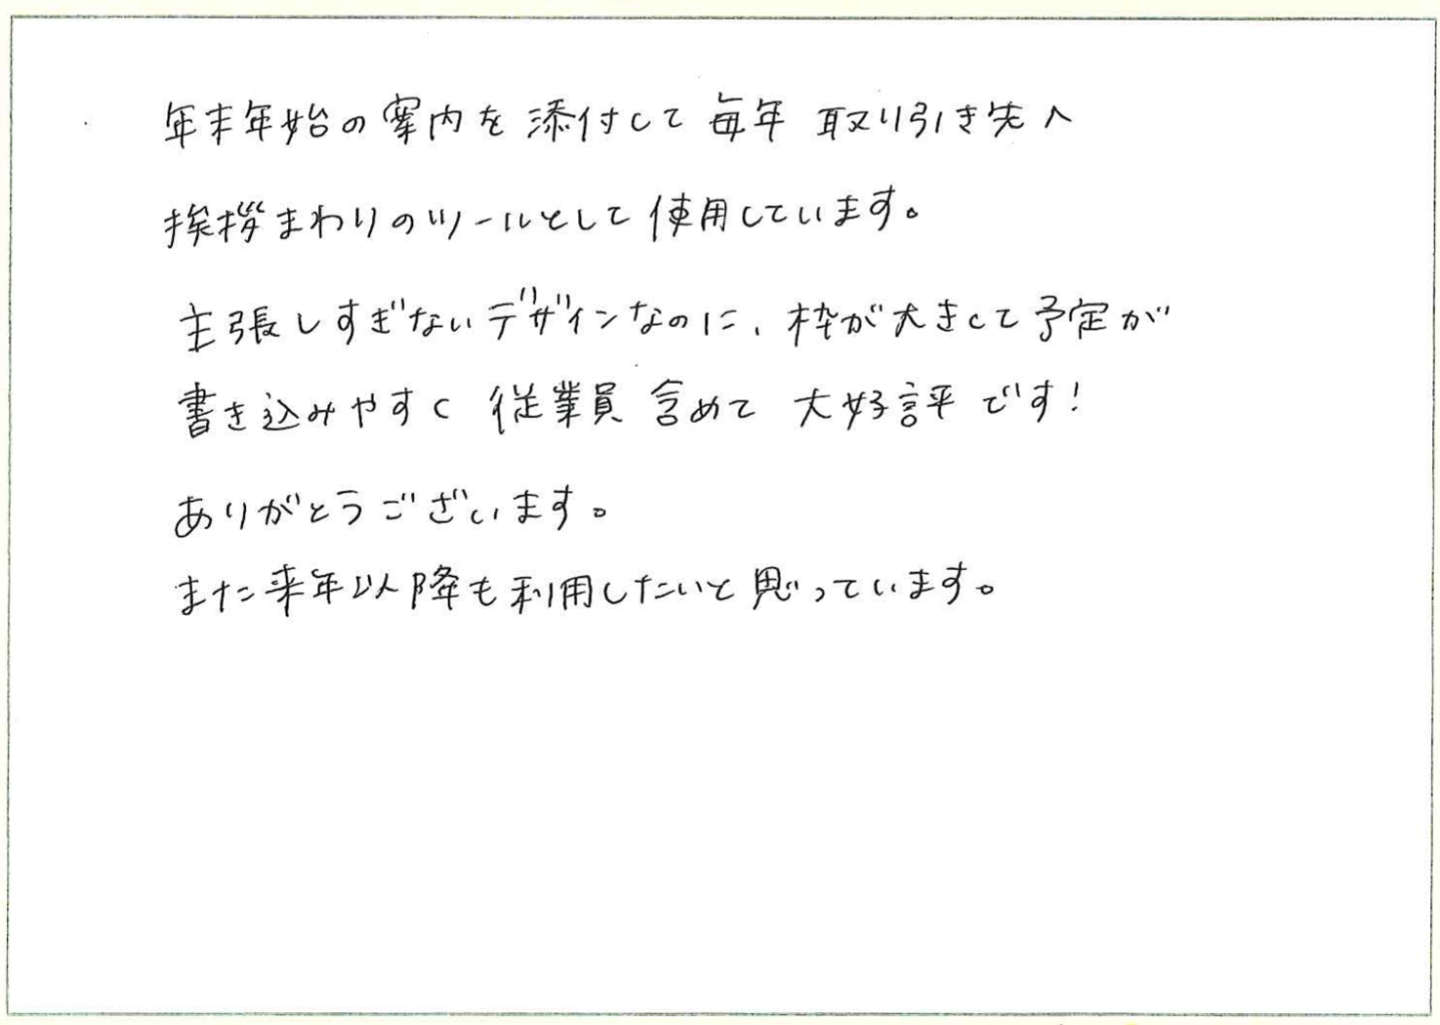 年末年始の案内を添付して毎年 取り引き先へ
挨拶まわりのツールとして使用しています。
主張しすぎないデザインなのに、枠が大きくて予定が
書き込みやすく 従業員 含めて 大好評です!
ありがとうございます。
また来年以降も利用したいと思っています。